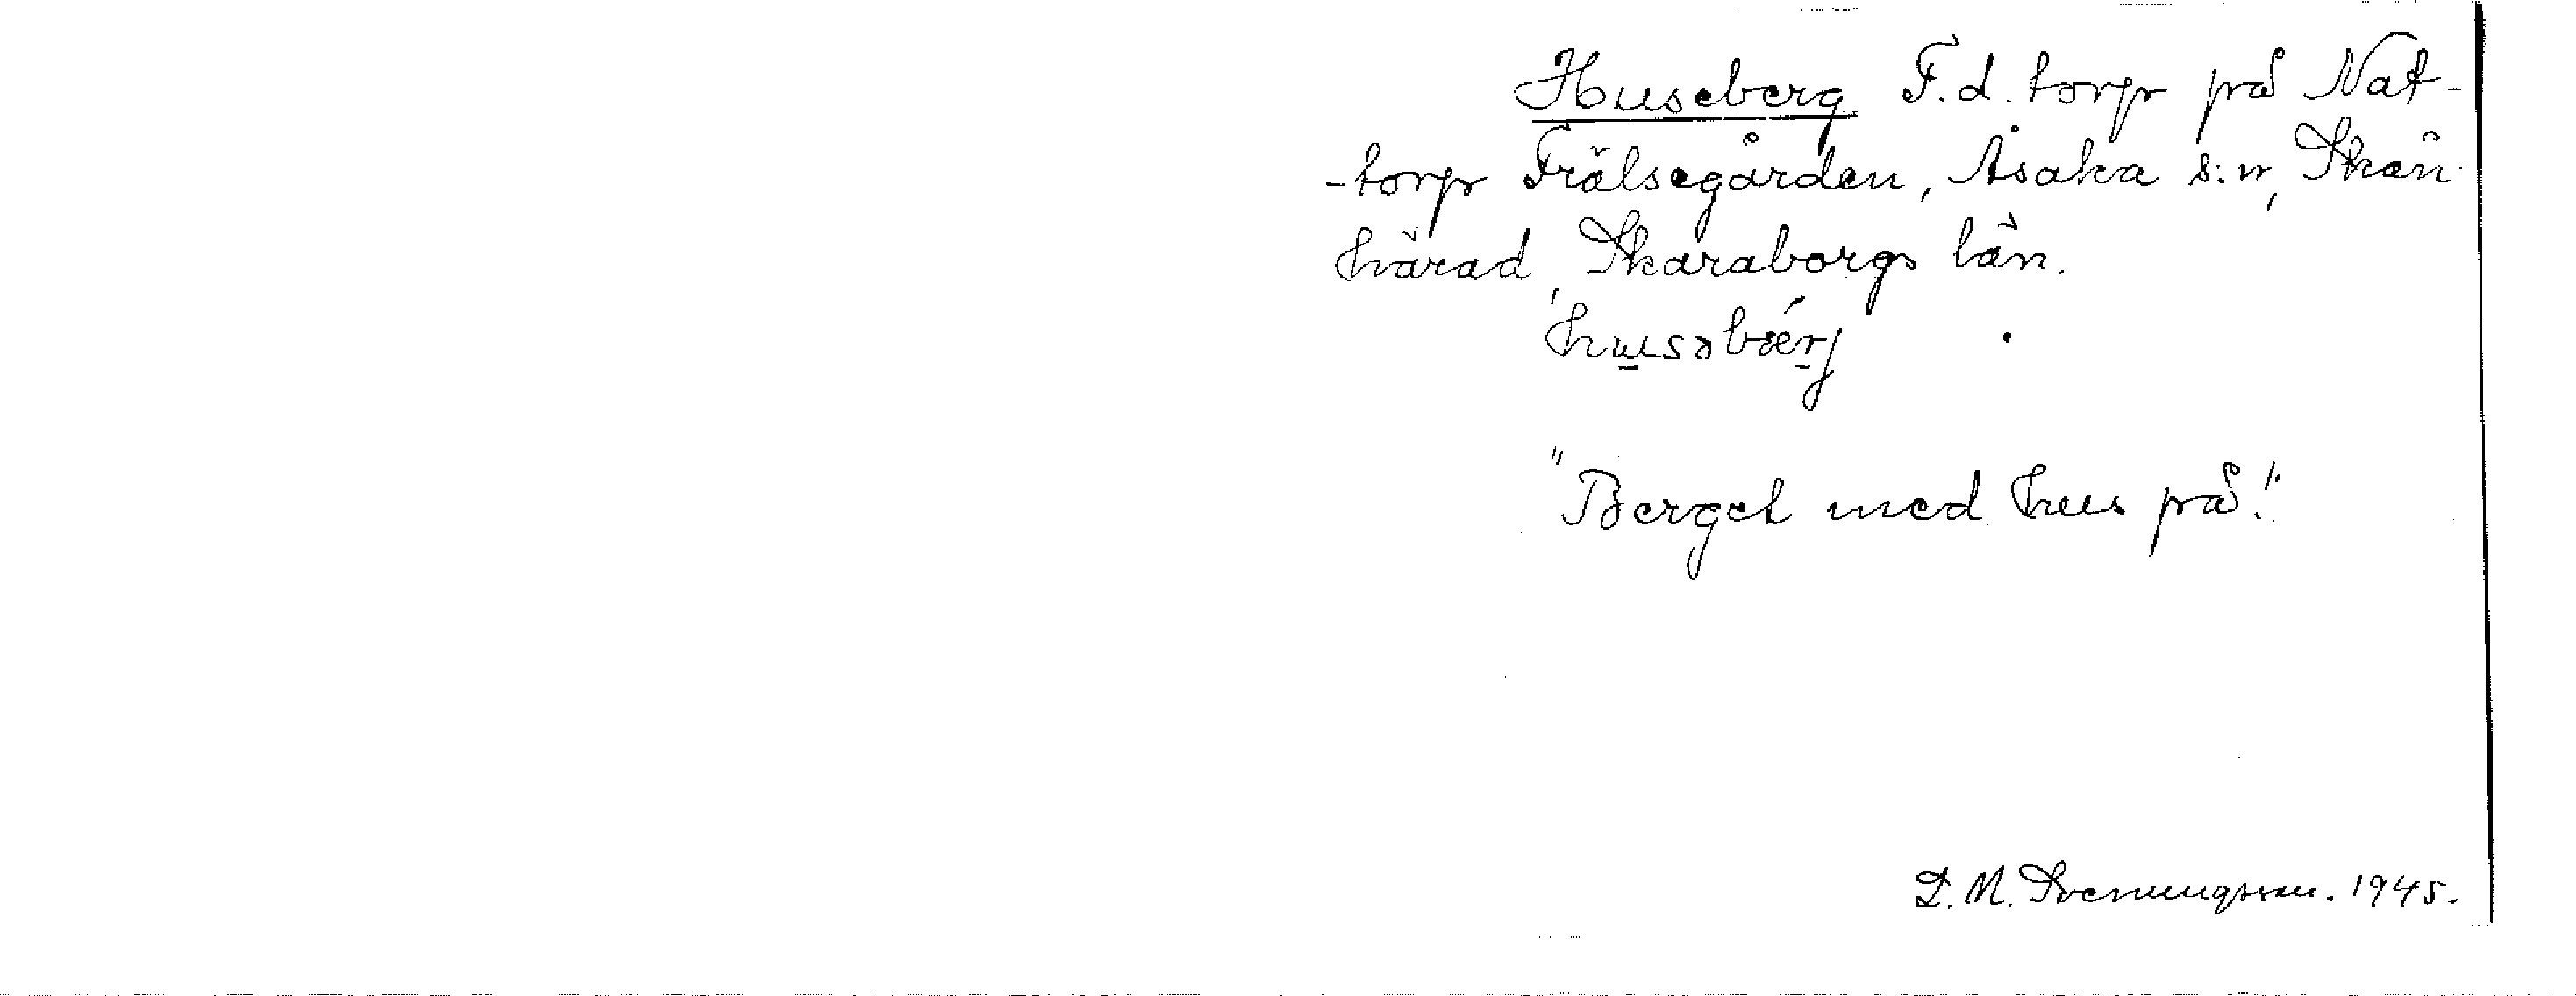 Huseberg F.d. torp på Nat-
-torp Frälsegården, Åsaka s:n, Skån.
härad, Skaraborgs län.
husəbǽrj
"Berget med hus på."
D. M. Svenungsson. 1945.